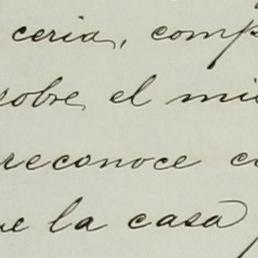 ceria, comp
sobre el mi
reconoce c
ue la casa